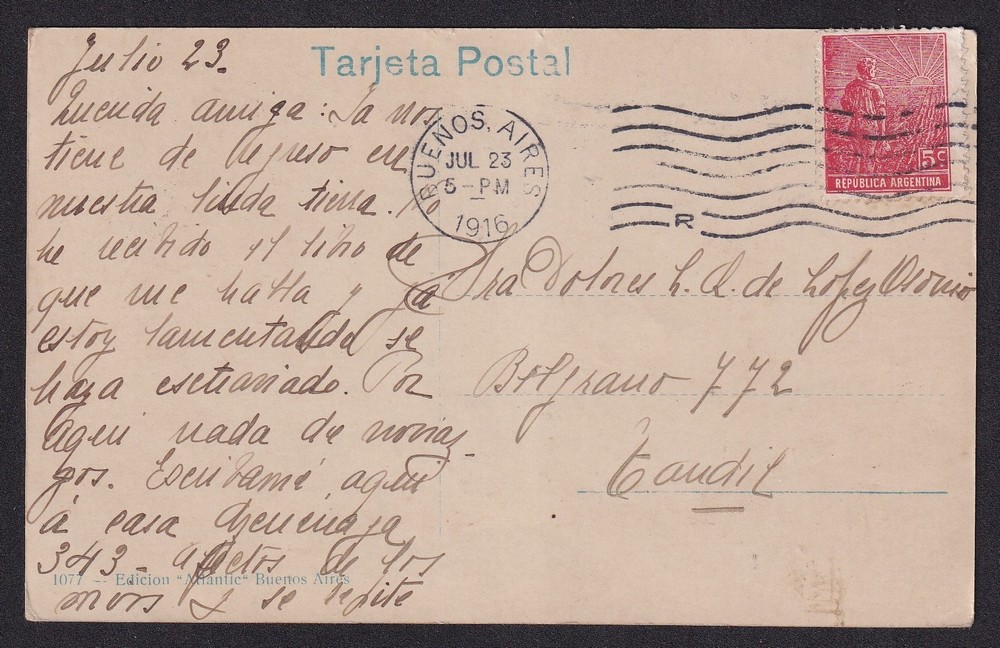 Tarjeta Postal
Julio 23.
Querida amiga: Ya nos
tiene de regreso en
nuestra linda tierra. No
he recibido el libro de
que me habla y ya
estoy lamentando se
haya extraviado. Por
aqui nada de novias
gos. Escribame aqui
á casa
343 - afectos de los
mios y se repite
BUENOS. AIRES
JUL 23
5-PM
1916
R
5c
REPUBLICA ARGENTINA
Sra Dolores L. Q. de Lopez Osornio
Belgrano 772
Tandil
1077 -- Edicion "Atlantic" Buenos Aires